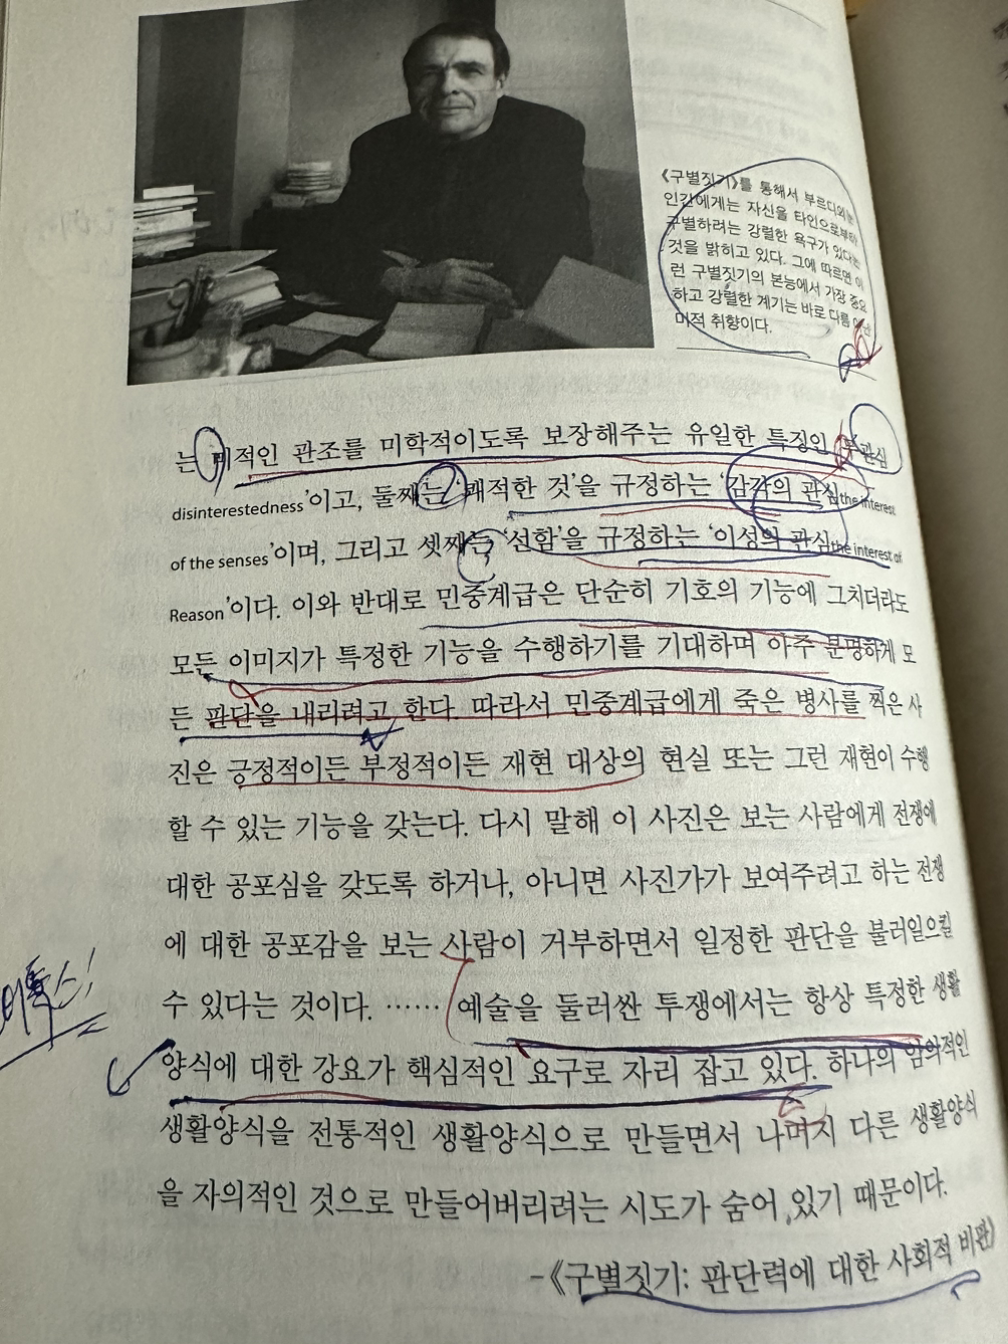 《구별짓기》를 통해서 부르디외는
인간에게는 자신을 타인으로부터
구별하려는 강렬한 욕구가 있다는
것을 밝히고 있다. 그에 따르면 이
런 구별짓기의 본능에서 가장 중요
하고 강렬한 계기는 바로 다름 아닌
미적 취향이다.
는 미적인 관조를 미학적이도록 보장해주는 유일한 특징인 '무관심
disinterestedness'이고, 둘째는 '쾌적한 것'을 규정하는 '감각의 관심the interest
of the senses'이며, 그리고 셋째는 '선함'을 규정하는 '이성의 관심the interest of
Reason'이다. 이와 반대로 민중계급은 단순히 기호의 기능에 그치더라도
모든 이미지가 특정한 기능을 수행하기를 기대하며 아주 분명하게 모
든 판단을 내리려고 한다. 따라서 민중계급에게 죽은 병사를 찍은 사
진은 긍정적이든 부정적이든 재현 대상의 현실 또는 그런 재현이 수행
할 수 있는 기능을 갖는다. 다시 말해 이 사진은 보는 사람에게 전쟁에
대한 공포심을 갖도록 하거나, 아니면 사진가가 보여주려고 하는 전쟁
에 대한 공포감을 보는 사람이 거부하면서 일정한 판단을 불러일으킬
수 있다는 것이다. …… 예술을 둘러싼 투쟁에서는 항상 특정한 생활
양식에 대한 강요가 핵심적인 요구로 자리 잡고 있다. 하나의 임의적인
생활양식을 전통적인 생활양식으로 만들면서 나머지 다른 생활양식
을 자의적인 것으로 만들어버리려는 시도가 숨어 있기 때문이다.
-《구별짓기: 판단력에 대한 사회적 비판》